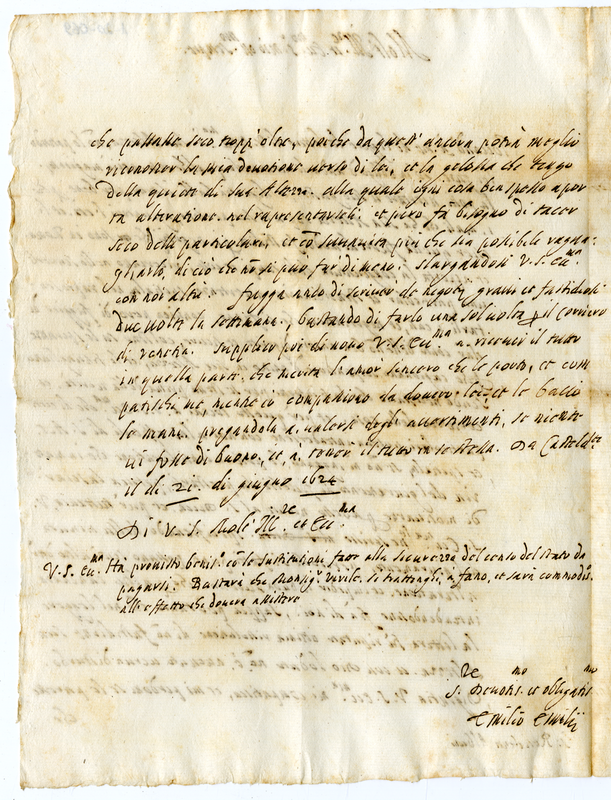 che passasse seco troppi oltre, poiche da questi ancora potrà meglio
riconoscer la mia devotione verso di lei, et la gelosia che tengo
della quiete di Sua Altezza alla quale ogni cosa ben spesso apor
ta alteratione nel rapresentarseli. et però fà bisogno di tacer
seco delli particulari, et cõ più che sia possibile raggua=
gliarlo, di ciò che nõ si può far di meno. Slargandosi V.S. Ecc.ma
con noi altri. fugga anco di scriver de negotij gravi et fastidiosi
due volte la settimana, bastando di farlo una sol volta p il corriero
di Venetia. Supplico poi di novo V.S. Ecc.ma a ricever il tutto
in quella parte che merita l'amor sincero che le porto, et com
patischi me, mentre io compatisco da dovero lei et le bacio
le mani pregandola à valersi degl' avertimenti, se niente
vi fosse di buono, et à tener il tutto in se stessa. Da Casteldte
il di 21 di giugno 1624
Di V. S. Molt' Ill.re et Ecc.ma
V.S. Ecc.ma Hà provisto beniss.o cõ le sustitutioni fatte alla sicurezza del censo del stato da
pagarsi. Bastarà che Monsig.r si trattenghi à fano, et sarà commodo
all' effetto che doverà assistere
S.re Devotis.mo et obligatis.mo
Emilio Emilij